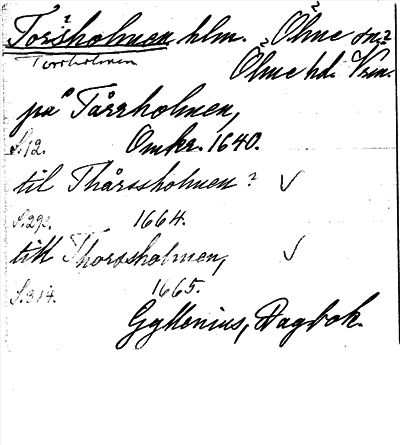 Torsholmen hlm. Ölme sn.
Torrholmen
Ölme hd. Vrm.
på Tårrholmen,
S.12. Omkr. 1640.
til Thårssholmen? ✓
S.292. 1664.
till Thorssholmen, ✓
S.314. 1665.
Gyllenius, Dagbok.